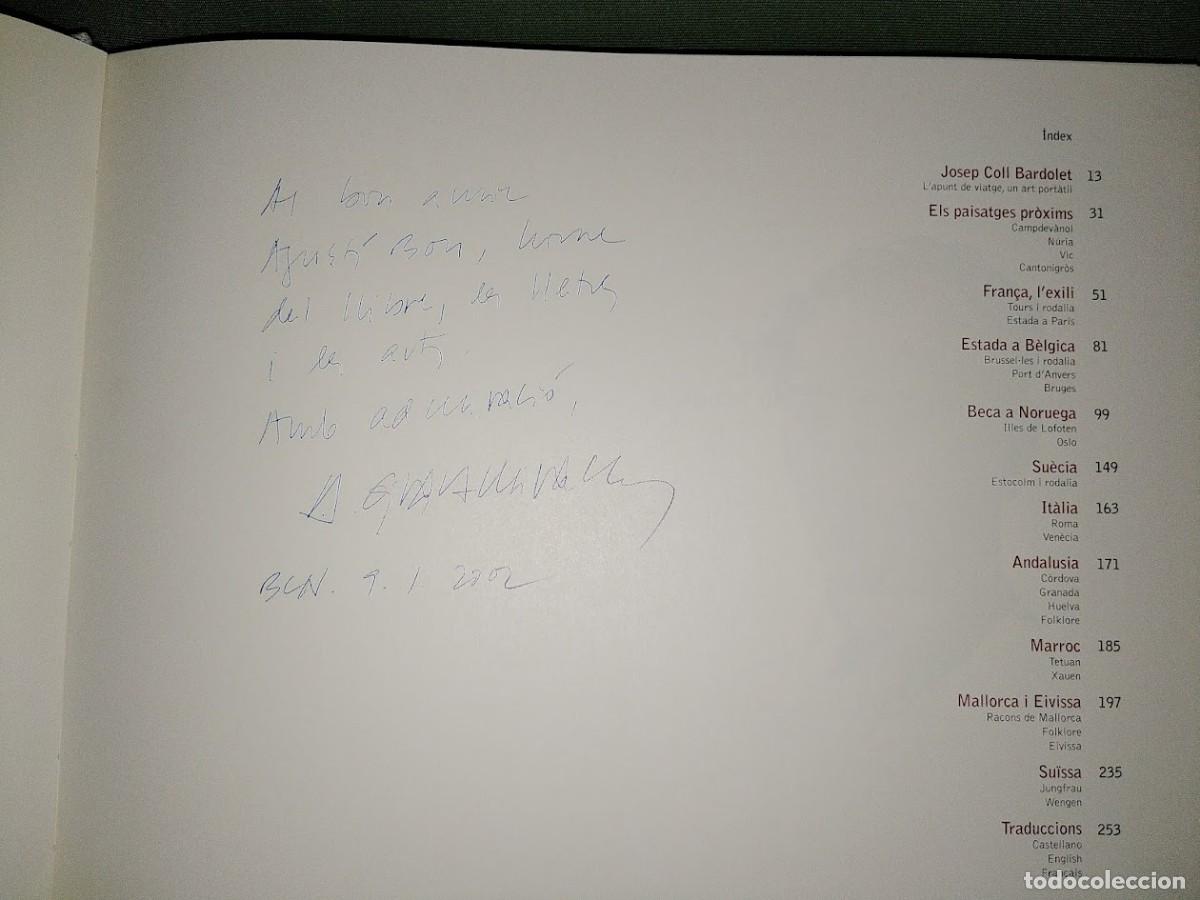 Al bon amic
Agustí Bon, home
del llibre, les lletres
i les arts.
Amb admiració,
BCN. 9. 1. 2002
Índex
Josep Coll Bardolet 13
L'apunt de viatge, un art portàtil
Els paisatges pròxims 31
Campdevànol
Núria
Vic
Cantonigròs
França, l'exili 51
Tours i rodalia
Estada a París
Estada a Bèlgica 81
Brussel·les i rodalia
Port d'Anvers
Bruges
Beca a Noruega 99
Illes de Lofoten
Oslo
Suècia 149
Estocolm i rodalia
Itàlia 163
Roma
Venècia
Andalusia 171
Còrdova
Granada
Huelva
Folklore
Marroc 185
Tetuan
Xauen
Mallorca i Eivissa 197
Racons de Mallorca
Folklore
Eivissa
Suïssa 235
Jungfrau
Wengen
Traduccions 253
Castellano
English
Français
todocoleccion